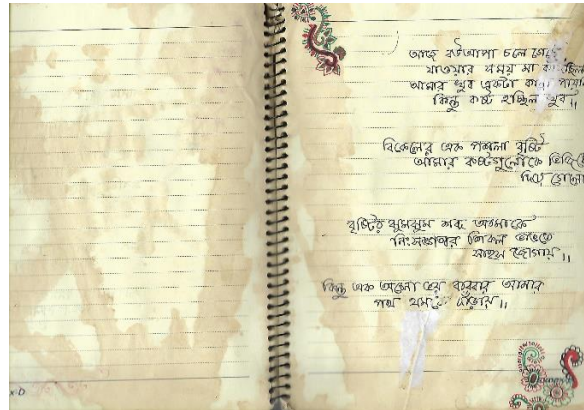 আজ বউআপা চলে গেছে
যাওয়ার সময় মা
আমার খুব একটা কান্না পায়নি
কিন্তু কষ্ট হচ্ছিল খুব।।
বিকেলের এক পশলা বৃষ্টি
আমার কষ্টগুলোকে ভিজিয়ে
দিয়ে গেলো
বৃষ্টির ঝুমঝুম শব্দ আমাকে
নিঃসঙ্গতার শিকল ভাঙতে
সাহস জোগায়।।
কিন্তু এক অজানা ভয় বারবার আমার
পথ থমকে দাঁড়ায়।।